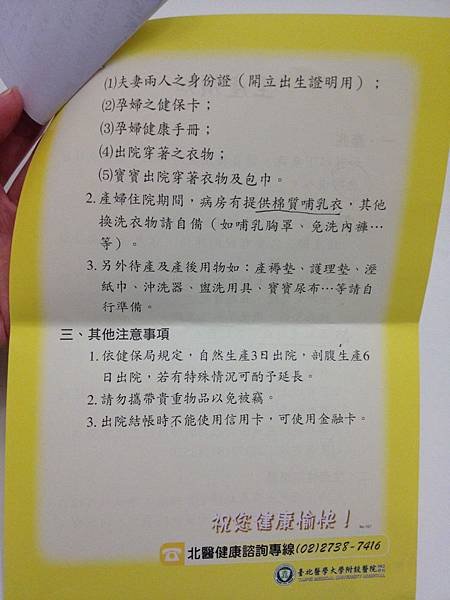 ⑴夫妻兩人之身份證（開立出生證明用）；
⑵孕婦之健保卡；
⑶孕婦健康手冊；
⑷出院穿著之衣物；
⑸寶寶出院穿著衣物及包巾。
2. 產婦住院期間，病房有提供棉質哺乳衣，其他
換洗衣物請自備（如哺乳胸罩、免洗內褲…
等）。
3. 另外待產及產後用物如：產褥墊、護理墊、溼
紙巾、沖洗器、盥洗用具、寶寶尿布…等請自
行準備。
三、其他注意事項
1. 依健保局規定，自然生產3日出院，剖腹生產6
日出院，若有特殊情況可酌予延長。
2. 請勿攜帶貴重物品以免被竊。
3. 出院結帳時不能使用信用卡，可使用金融卡。
祝您健康愉快！
北醫健康諮詢專線(02)2738-7416
臺北醫學大學附設醫院
TAIPEI MEDICAL UNIVERSITY HOSPITAL